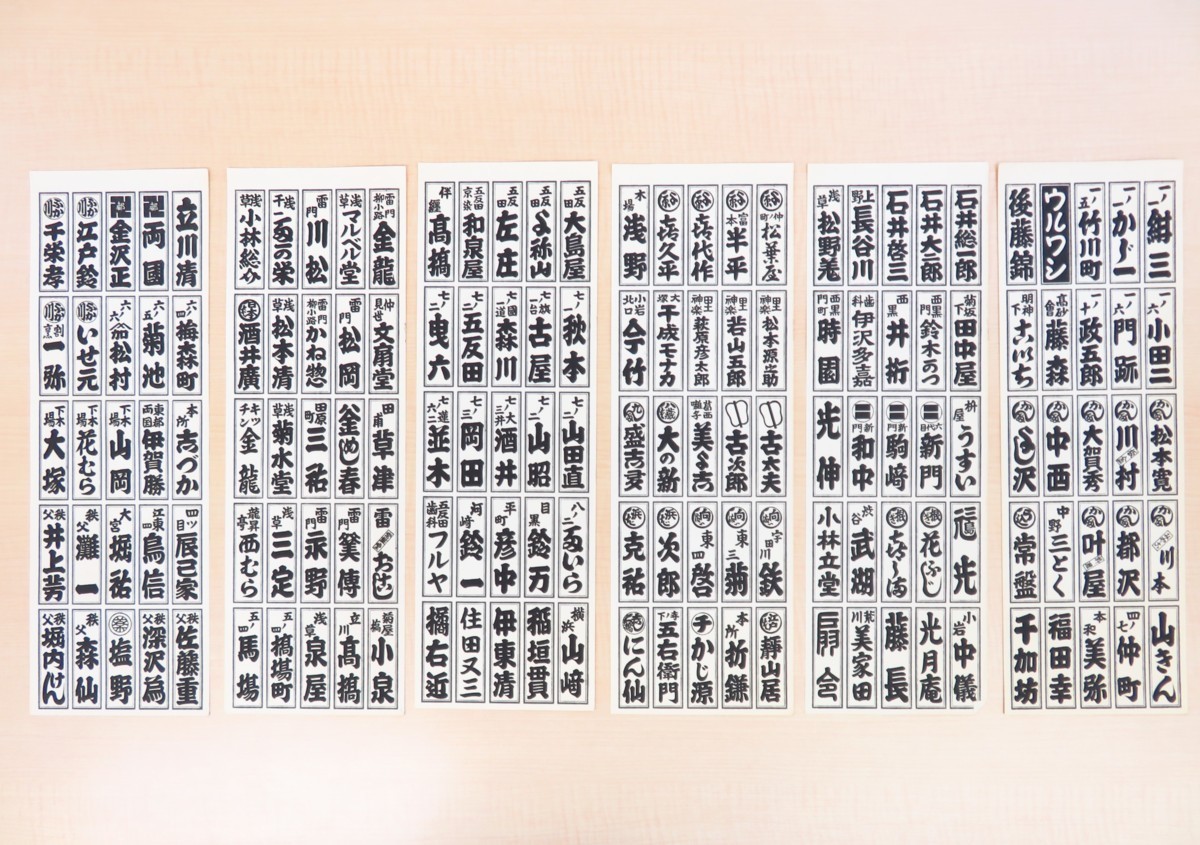 紺三
竹川町
ウルワシ
後藤錦
一ノ六 小田二
門跡
政五郎
高砂會 藤森
明神下
松本寛
川村
大賀秀
中西
川本
都沢
叶屋
中野 三とく
常盤
山きん
四七 仲町
本和 美弥
福田幸
千加坊
石井総一郎
石井大二郎
石井啓三
上野 長谷川
浅草
菊坂 田中屋
西黒門 鈴木かつ
西黒 井桁
歯科 伊沢多嘉
西黒門町 時園
枡屋 うすい
六代目 新門
新門 駒﨑
新門 和中
光伸
花ふじ
渋谷 武湖
小林立堂
小岩 中儀
光月庵
藤長
荒川 美家田
扇令
仲ノ町 松葉屋
富本 半平
㐂代作
㐂久平
木場 浅野
里神楽 松本源之助
里神楽 若山五郎
里神楽 萩原彦太郎
大塚 干成モナカ
小岩北口 今竹
古丈夫
古次郎
葛西囃子 美よ志
大の新
盛吉安
宇田川 鉄
東三 菊
東四 啓
次郎
克祐
靜山居
本所 折鎌
かじ源
五右衛門
にん仙
五反田 大島屋
五反田 よ祢山
五反田 左庄
五反田京染 和泉屋
伴纏 髙槗
七ノ一 秋本
七旗一台 古屋
七國一道 森川
七ノ二 五反田
七ノ二 曳六
七ノ二 山田直
七ノ二 山昭
七大三井 酒井
七ノ三 岡田
七進六二 並木
八ノ二 ゐいら
目黒 鈴万
平町 彦中
河﨑 鈴一
五反田歯科 フルヤ
横浜 山﨑
稲垣貫
伊東清
住田又三
橘右近
雷門柳小路 金龍
浅草 マルベル堂
雷門 川松
浅草 小林総介
仲見世 文扇堂
雷門 松岡
雷門柳小路 かね惣
浅草 松本清
酒井廣
田甫 草津
釜めし春
田原町 三祐
浅草 菊水堂
キッチン 金龍
雷 おけし
雷門 簑傳
雷門 永野
浅草 三定
龍昇亭 西むら
菊屋橋 小泉
立川 髙槗
浅草 泉屋
五ノ四 槗場町
五ノ四 馬場
立川清
両國
金沢正
江戸鈴
千栄孝
四ノ六 槍森町
六ノ五 菊池
松村
いせ元
割烹 一弥
本所 志づか
東都両国 伊賀勝
下木場 山岡
下木場 花むら
下木場 大塚
四ツ目 辰己家
江東四 鳥信
大宮 堀祐
秩父 灘一
秩父 井上芳
秩父 佐藤重
秩父 深沢為
塩野
秩父 森仙
秩父 堀内けん